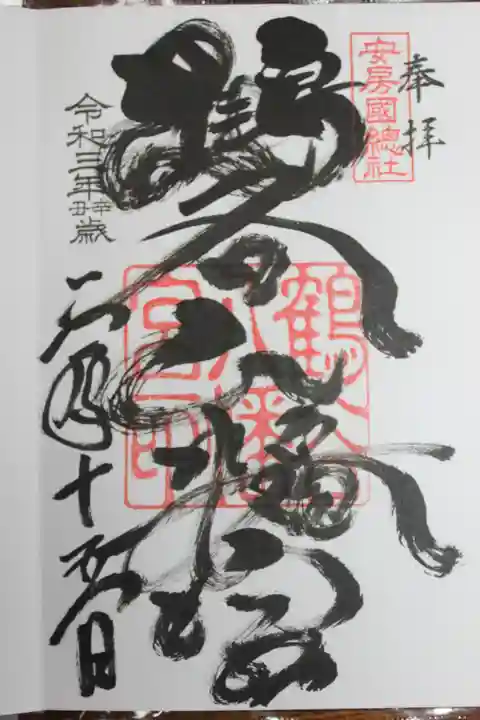 奉拝
安房國總社
鶴谷八幡宮
鶴谷
八幡
宮印
令和三年辛丑歳
十五日